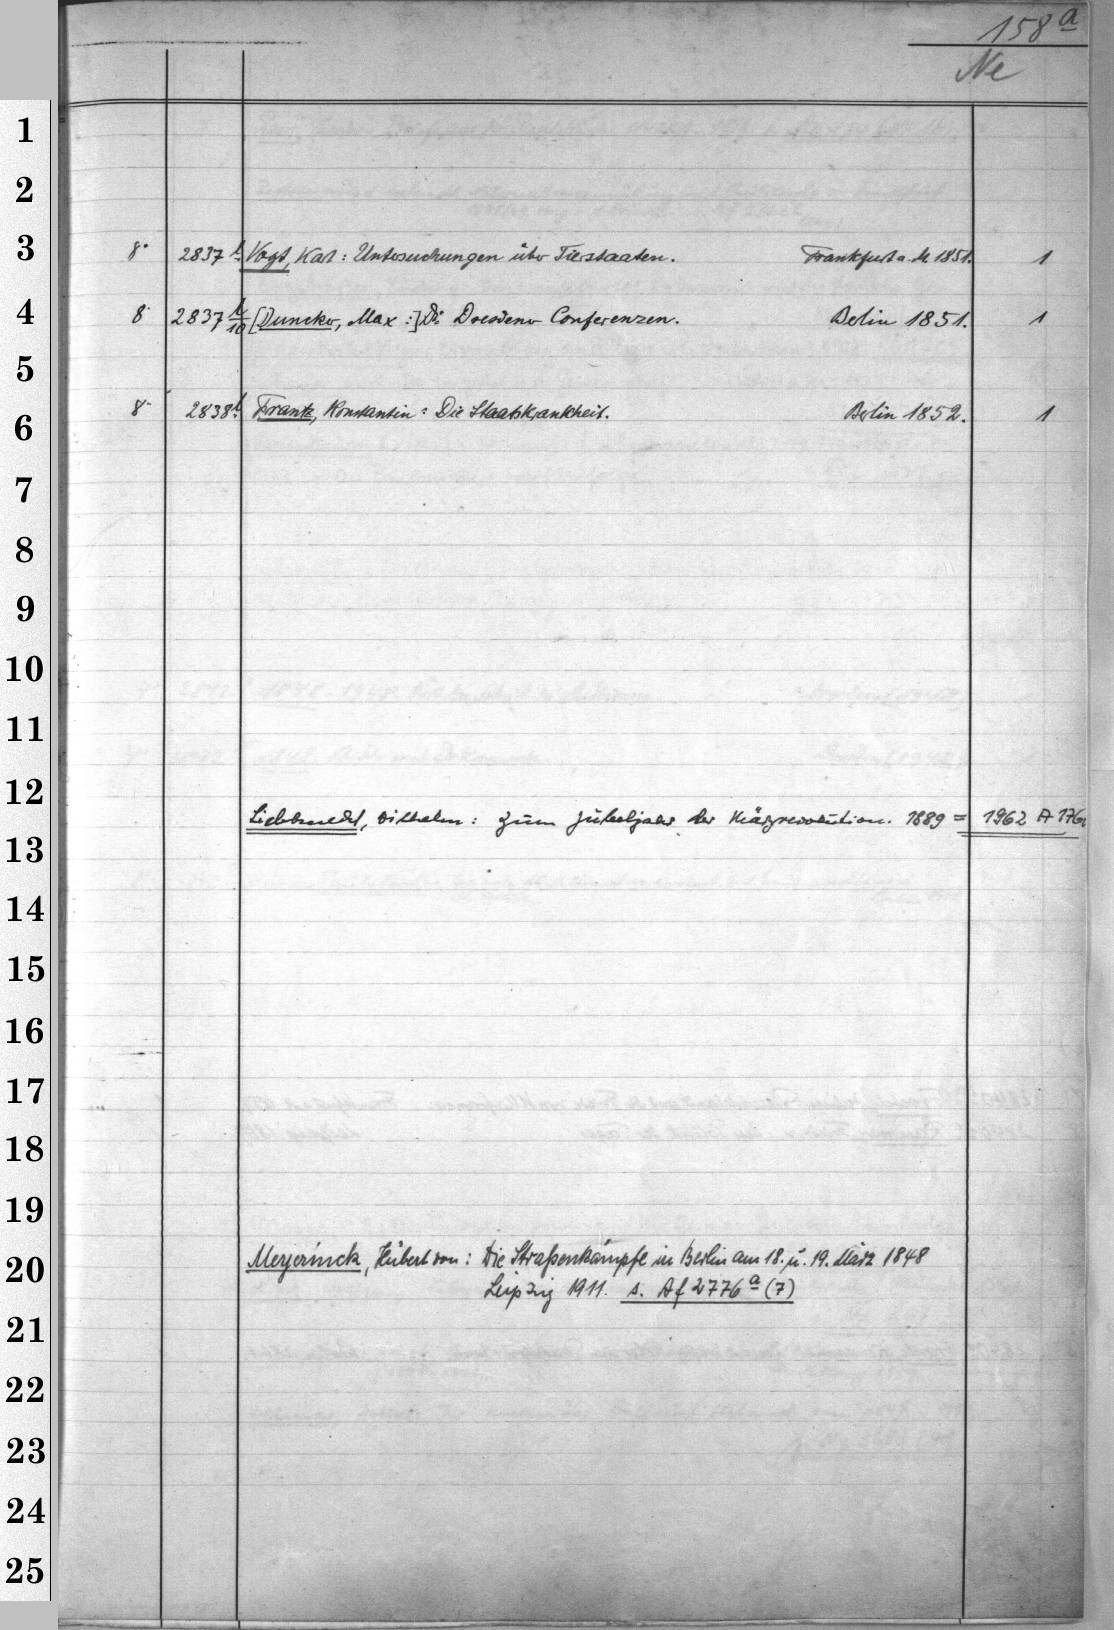 158 a
Ne
1
2
3
8° 2837 t Vogt, Karl: Untersuchungen über Tierstaaten. Frankfurt a. M 1851. 1
4
8° 2837 t/10 [Duncker, Max:] Die Dresdener Conferenzen. Berlin 1851. 1
5
8° 2838 t Frantz, Konstantin: Die Staatskrankheit. Berlin 1852. 1
6
7
8
9
10
11
12
Liebknecht, Wilhelm: Zum Jubeljahr der Märzrevolution. 1889 = 1962 A 176
13
14
15
16
17
18
19
Meyerinck, Hubert von: Die Straßenkämpfe in Berlin am 18. u. 19. März 1848
20
Leipzig 1911. s. Af 2776 a (7)
21
22
23
24
25